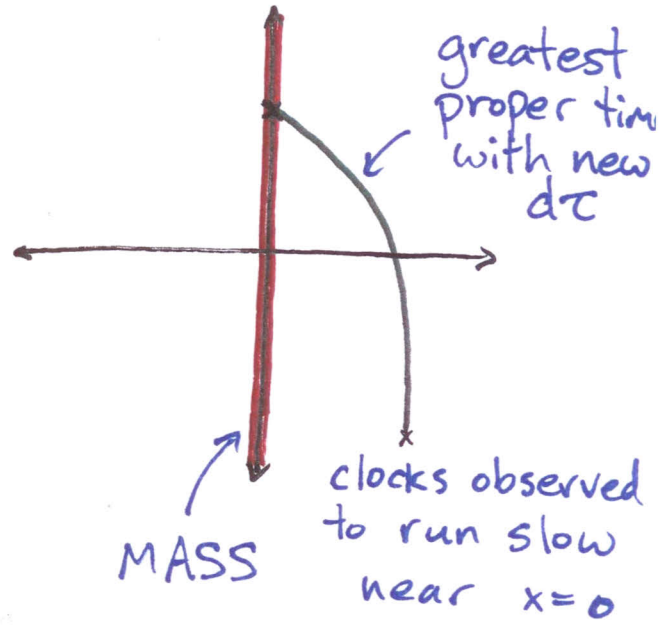 greatest
proper tim
with new
dτ
MASS
clocks observed
to run slow
near x=0